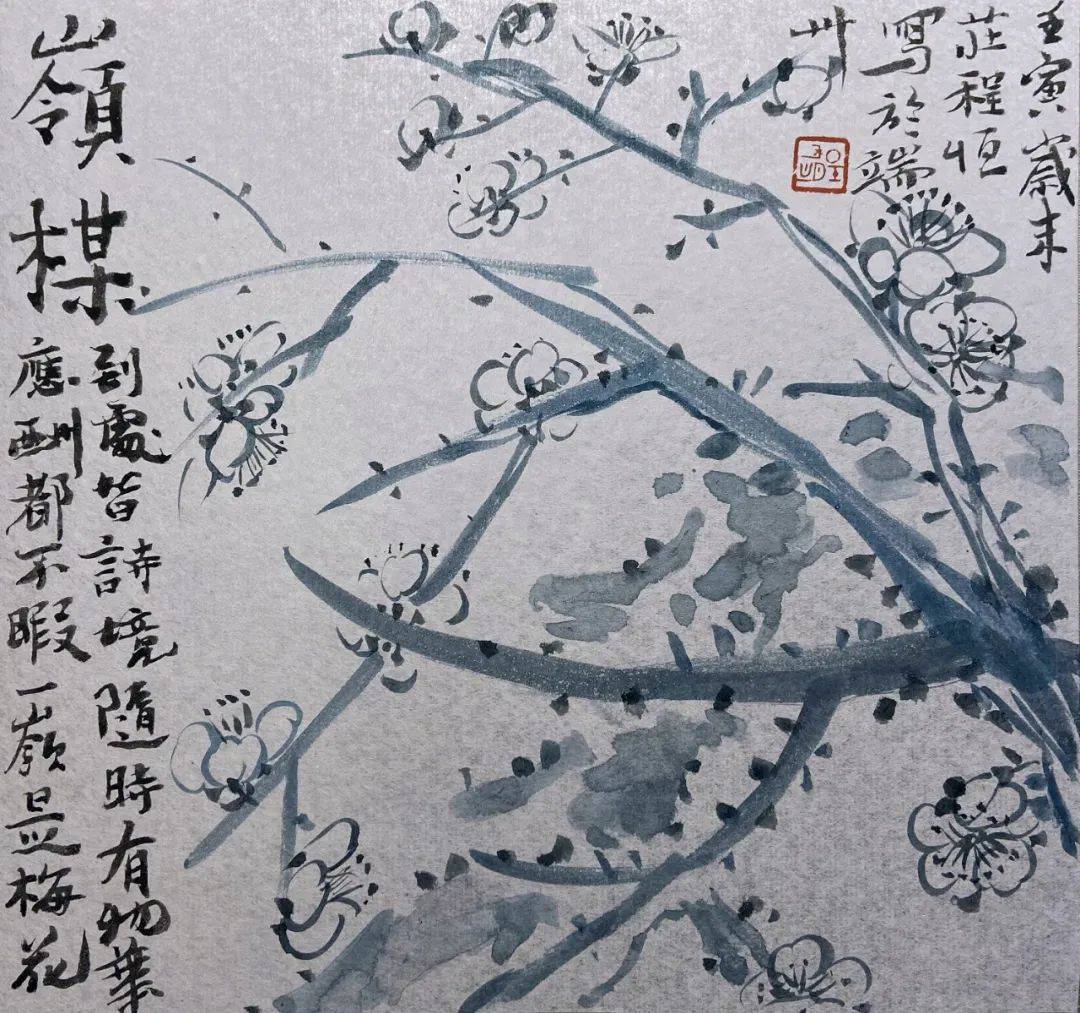 嶺楳
到處皆詩境隨時有物華
應酬都不暇一嶺是梅花
壬寅歲末
莊程恒
寫於端
州